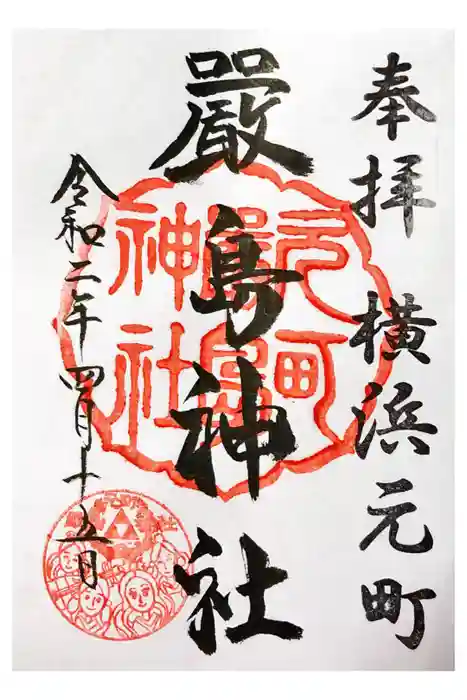 奉拝 横浜元町
嚴島神社
令和二年四月十五日
元町
嚴島
神社